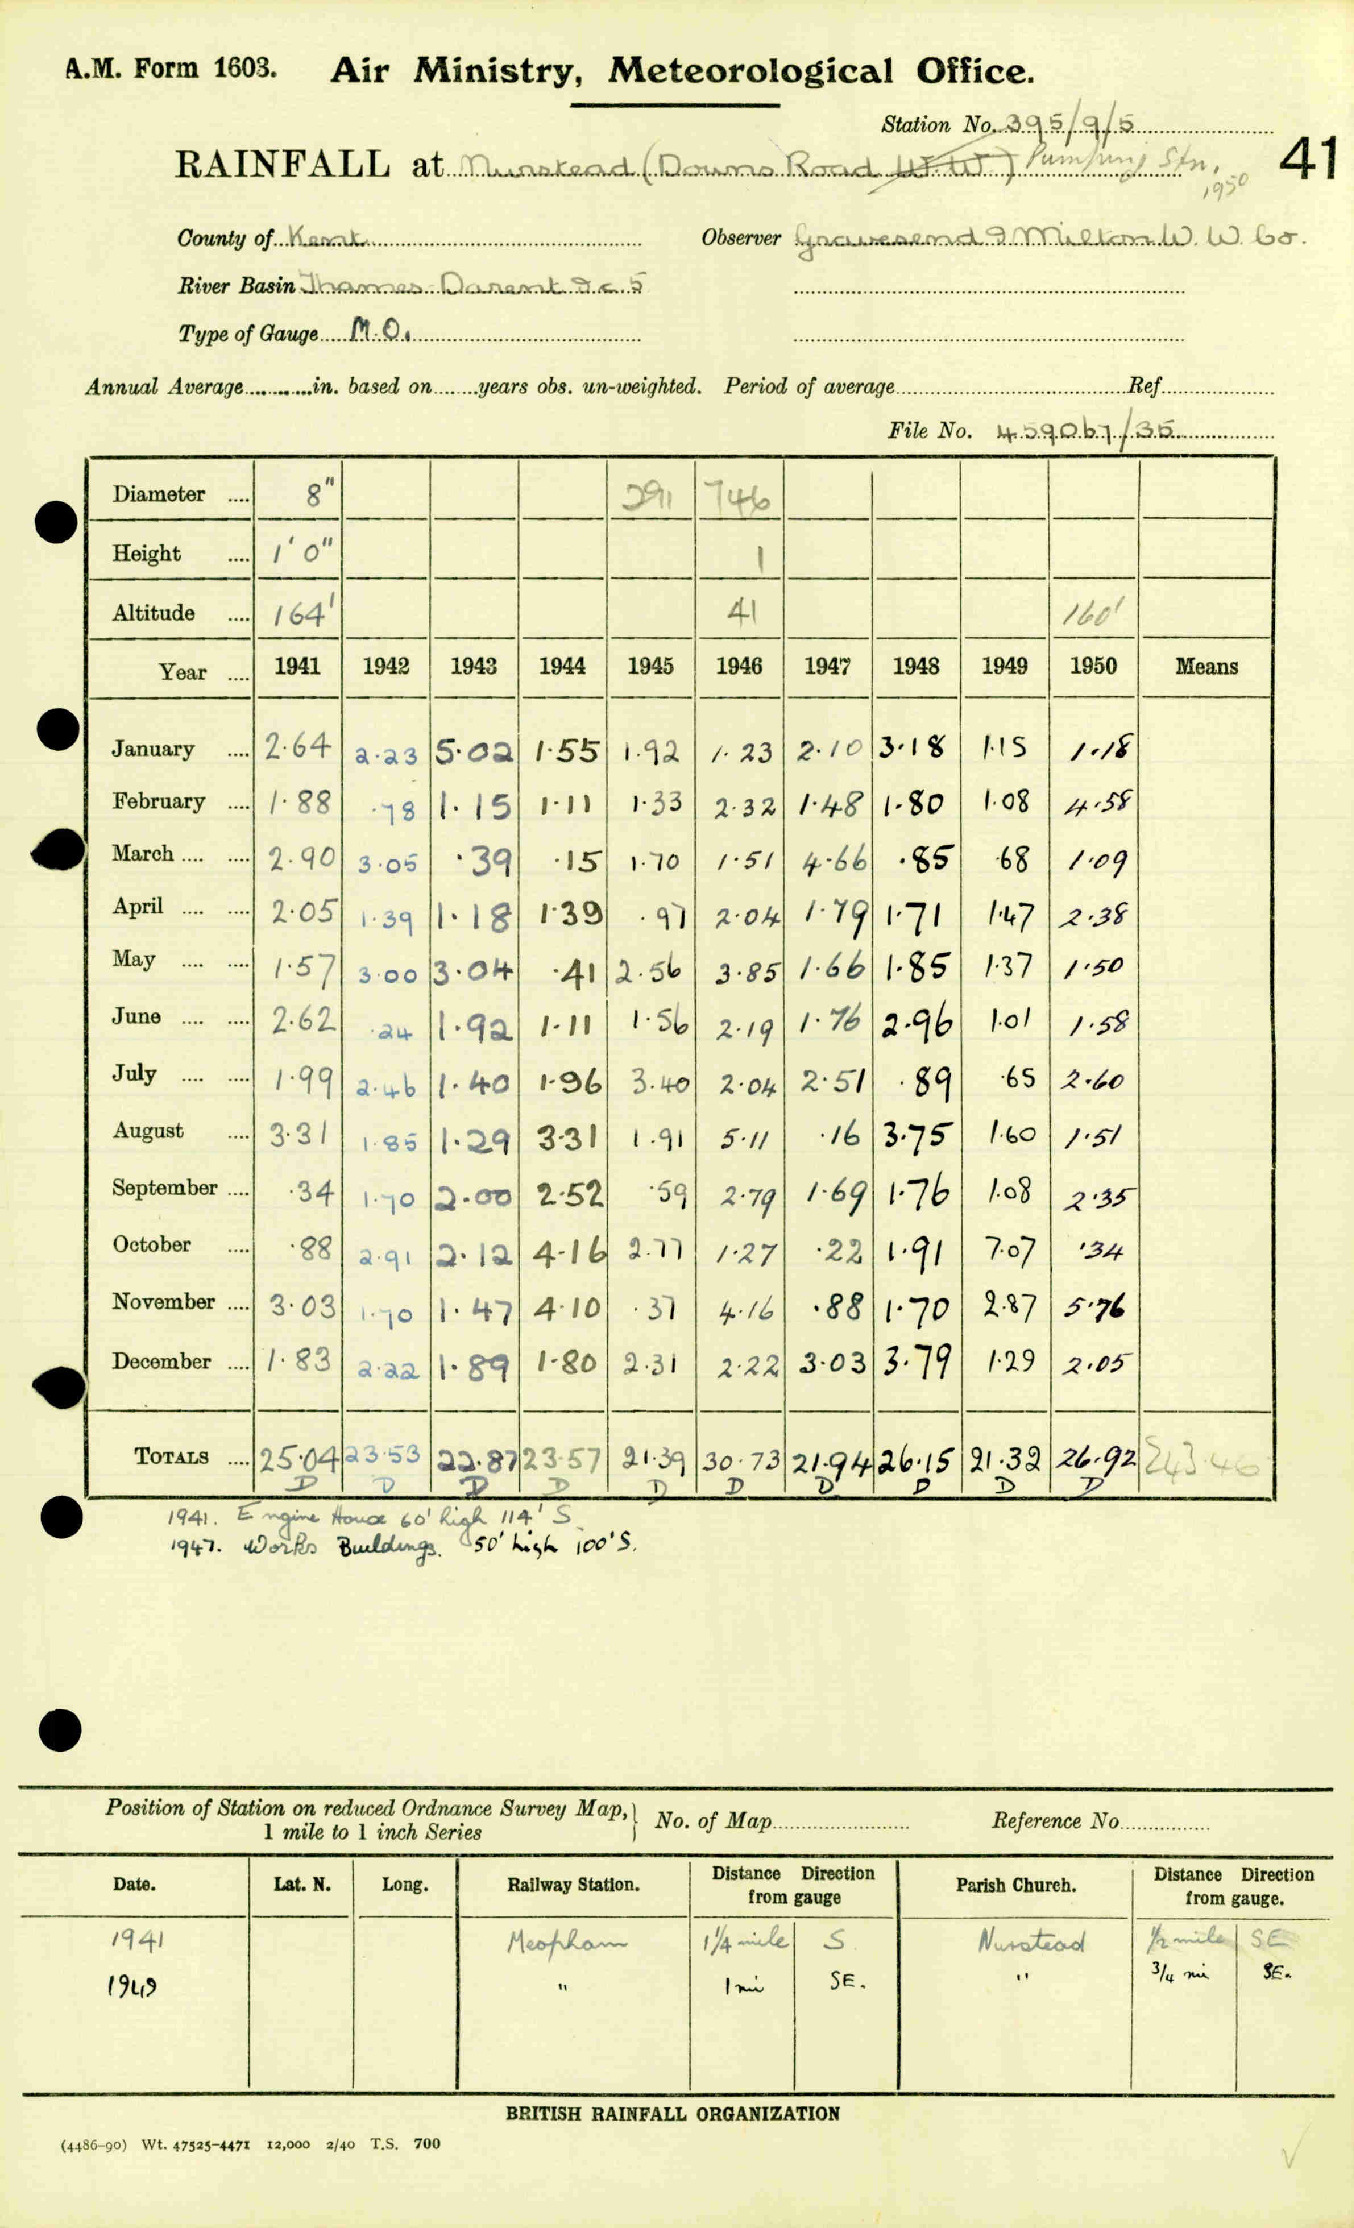 A.M. Form 1603. Air Ministry, Meteorological Office.
Station No. 395/9/5
RAINFALL at Nurstead (Downs Road W.W.) Pumping Stn. 1950
41
County of Kent Observer Gravesend & Milton W. W. Co.
River Basin Thames-Darent &c 5
Type of Gauge M.O.
Annual Average in. based on years obs. un-weighted. Period of average Ref
File No. 459067/35
Diameter 8" 291 746
Height 1' 0" 1
Altitude 164' 41 160'
Year 1941 1942 1943 1944 1945 1946 1947 1948 1949 1950 Means
January 2.64 2.23 5.02 1.55 1.92 1.23 2.10 3.18 1.15 1.18
February 1.88 .78 1.15 1.11 1.33 2.32 1.48 1.80 1.08 4.58
March 2.90 3.05 .39 .15 1.70 1.51 4.66 .85 .68 1.09
April 2.05 1.39 1.18 1.39 .97 2.04 1.79 1.71 1.47 2.38
May 1.57 3.00 3.04 .41 2.56 3.85 1.66 1.85 1.37 1.50
June 2.62 .24 1.92 1.11 1.56 2.19 1.76 2.96 1.01 1.58
July 1.99 2.46 1.40 1.96 3.40 2.04 2.51 .89 .65 2.60
August 3.31 1.85 1.29 3.31 1.91 5.11 .16 3.75 1.60 1.51
September .34 1.70 2.00 2.52 .59 2.79 1.69 1.76 1.08 2.35
October .88 2.91 2.12 4.16 2.77 1.27 .22 1.91 7.07 .34
November 3.03 1.70 1.47 4.10 .37 4.16 .88 1.70 2.87 5.76
December 1.83 2.22 1.89 1.80 2.31 2.22 3.03 3.79 1.29 2.05
TOTALS 25.04 23.53 22.87 23.57 21.39 30.73 21.94 26.15 21.32 26.92 243.46
D D D D D D D D D D
1941. Engine House 60' high 114' S.
1947. Works Buildings. 50' high 100' S.
Position of Station on reduced Ordnance Survey Map, 1 mile to 1 inch Series } No. of Map Reference No
Date. Lat. N. Long. Railway Station. Distance Direction from gauge Parish Church. Distance Direction from gauge.
1941 Meopham 1 1/4 mile S Nurstead 1/2 mile SE
1949 " 1 mi SE. " 3/4 mi SE.
BRITISH RAINFALL ORGANIZATION
(4486-90) Wt. 47525-4471 12,000 2/40 T.S. 700